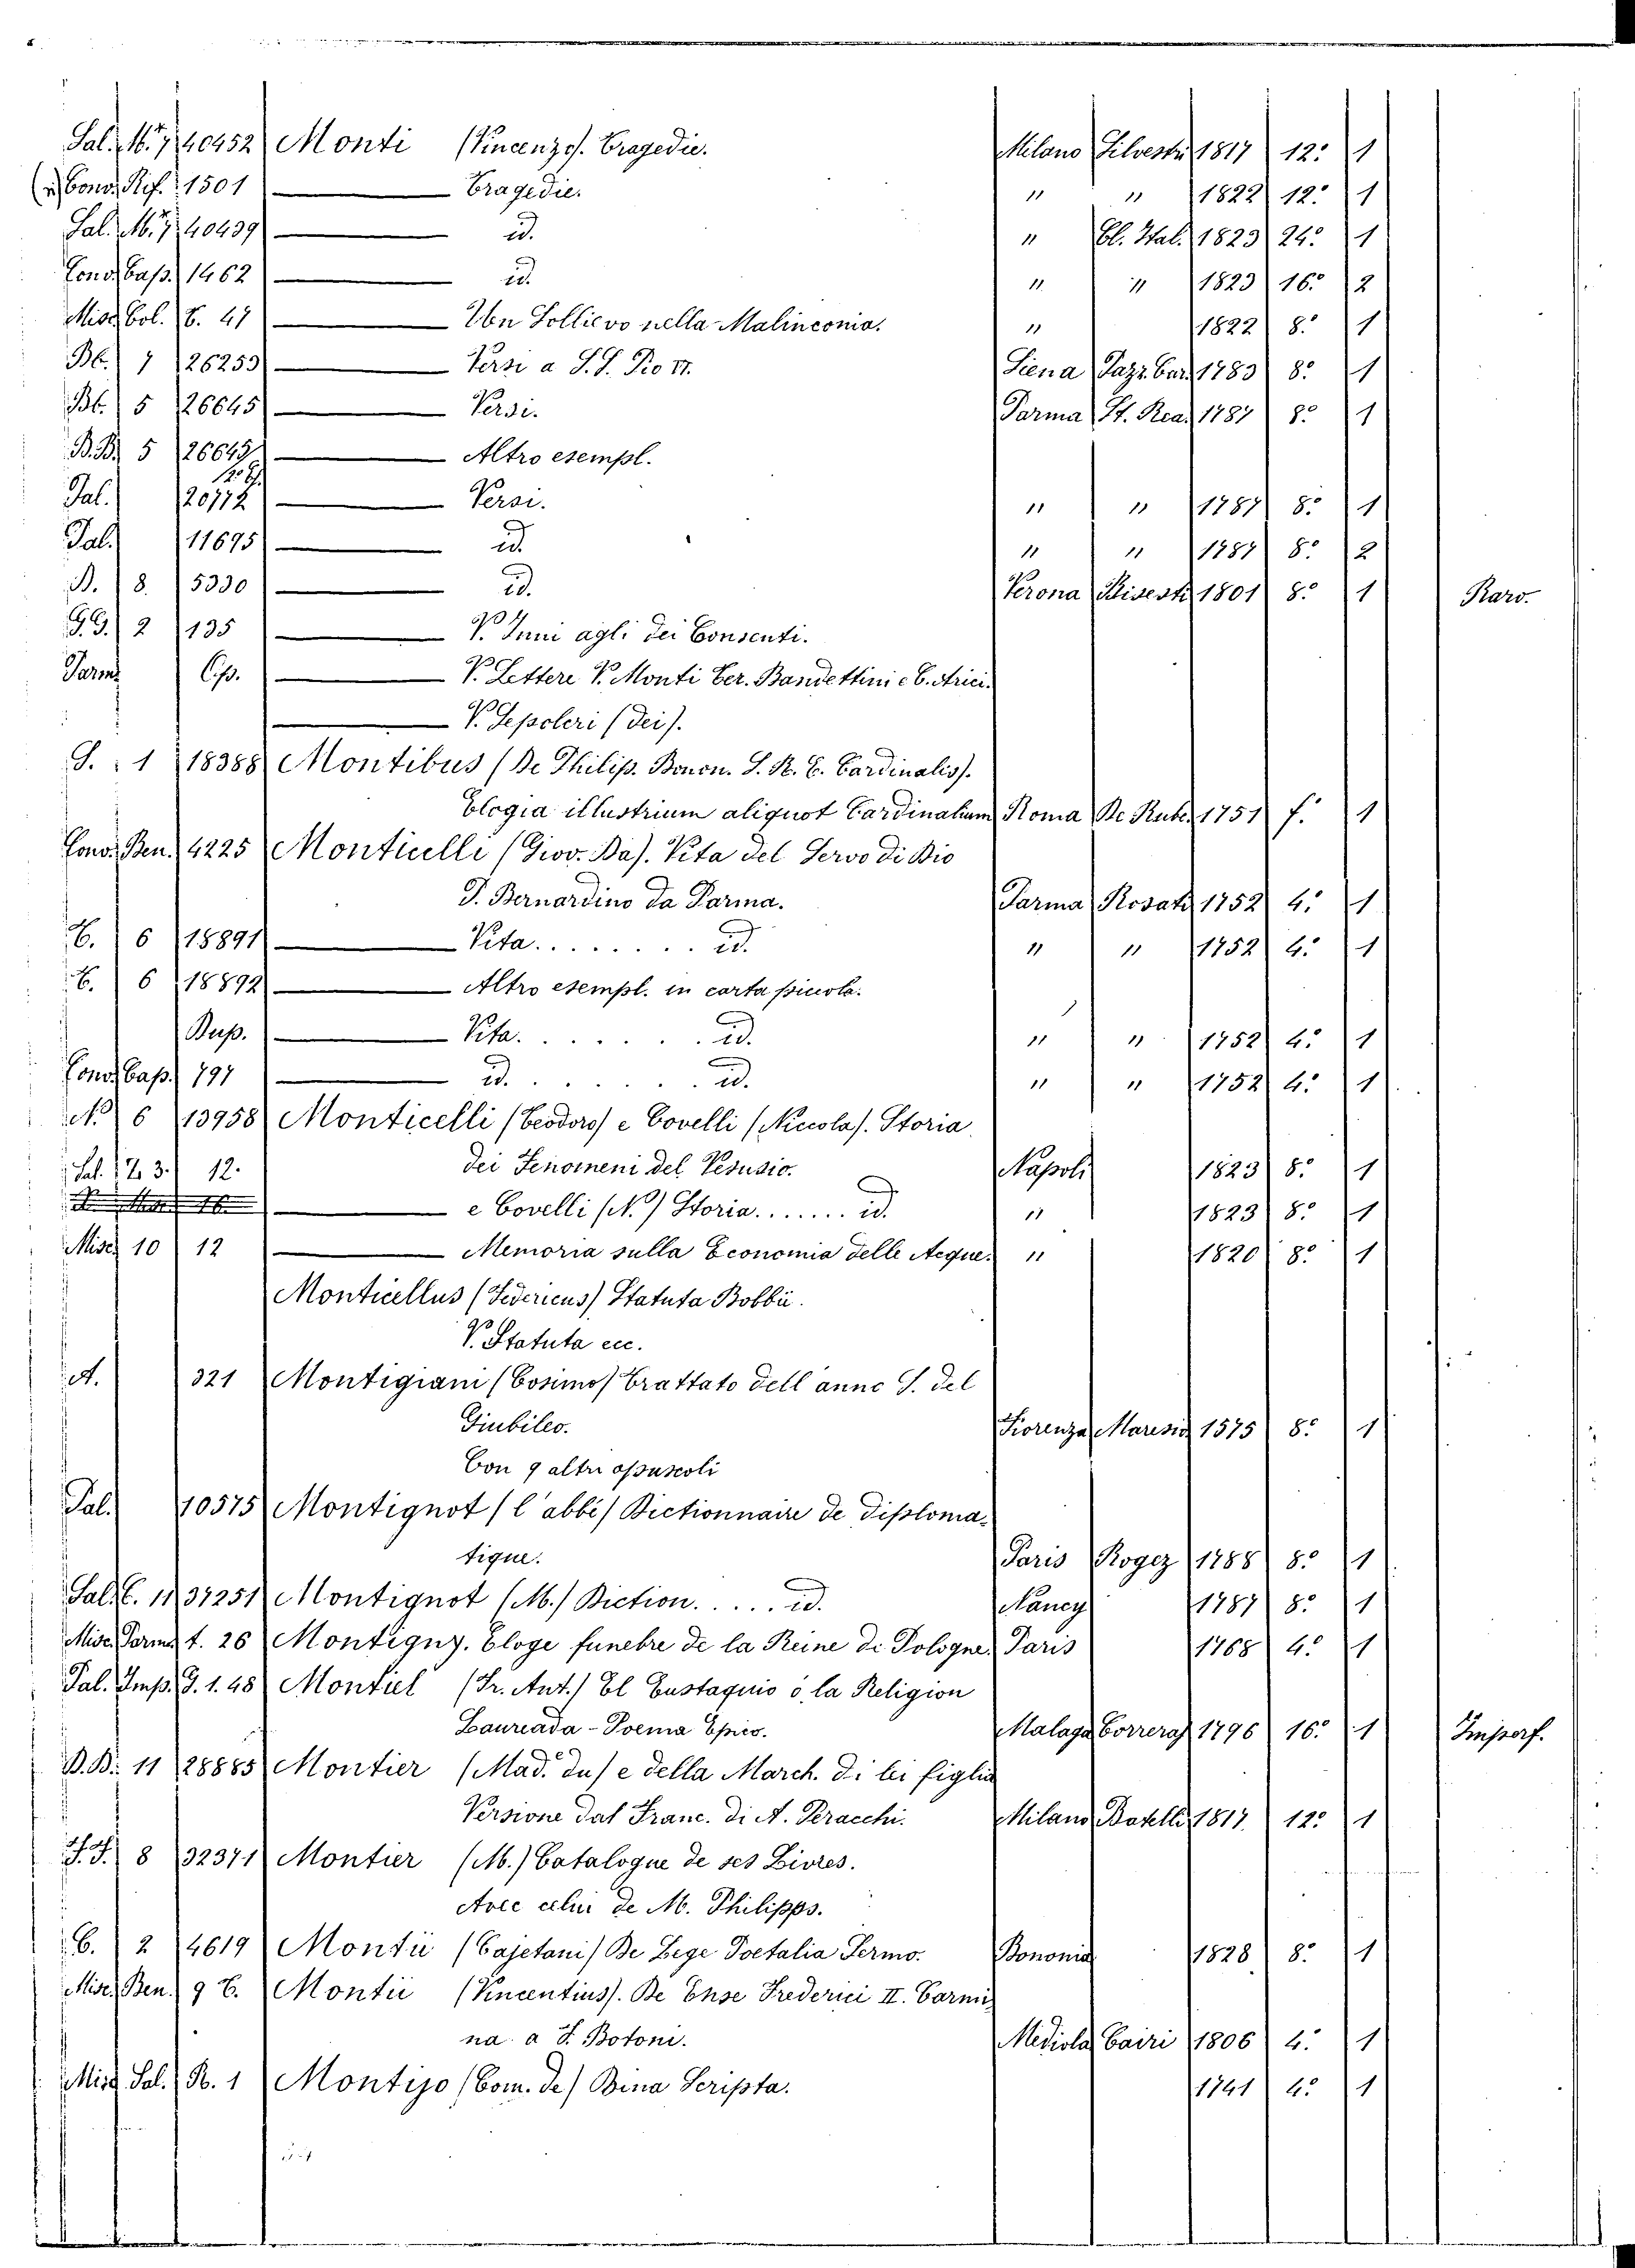 Sal. M. 7 40452 Monti (Vincenzo). Tragedie. Milano Silvestri 1817 12.º 1
Conv. Rif. 1501 — Tragedie. " " 1822 12.º 1
Sal. M. 7 40439 — id. " Cl. Ital. 1823 24.º 1
Conv. Capp. 1462 — id. " " 1823 16.º 2
Misc. Col. T. 47 — Un Sollievo nella Malinconia. " 1822 8.º 1
BC. 7 26253 — Versi a S. S. Pio VI. Siena Pazz. Car. 1783 8.º 1
Bb. 5 26645 — Versi. Parma St. Rea. 1787 8.º 1
B.B. 5 26645 — Altro esempl.
Pal. 20772 — Versi. " " 1787 8.º 1
Pal. 11695 — id. " " 1787 8.º 2
B. 8. 5330 — id. Verona Bisesti 1801 8.º 1 Raro.
G.G. 2 135 — V. Inni agli dei Consenti.
Parm. — V. Lettere V. Monti Ter. Bandettini e C. Arici.
— V. Sepolcri (dei).
S. 1 18388 Montibus (De Philip. Bonon. S. R. E. Cardinalis).
Elogia illustrium aliquot Cardinalium Roma De Rube. 1751 f. 1
Conv. Ben. 4225 Monticelli (Giov. Ba). Vita del Servo di Dio
P. Bernardino da Parma. Parma Rosati 1752 4.º 1
C. 6 18891 — Vita........ id. " " 1752 4.º 1
C. 6 18892 — Altro esempl. in carta piccola.
Dup. — Vita....... id. " " 1752 4.º 1
Conv. Cap. 797 — id....... id. " " 1752 4.º 1
N. 6 13958 Monticelli (Teodoro) e Covelli (Niccola). Storia
Sal. 12. dei Fenomeni del Vesusio. Napoli 1823 8.º 1
— e Covelli (N.) Storia....... id. " 1823 8.º 1
Misc. 10 12 — Memoria sulla Economia delle Acque. " 1820 8.º 1
Monticellus (Federicus) Statuta Bobbii.
V. Statuta ecc.
A. 321 Montigiani (Cosimo) Trattato dell'anno S. del
Giubileo. Fiorenza Maresco 1575 8.º 1
Con 9 altri opuscoli
Pal. 10575 Montignot (l'abbé) Dictionnaire de diploma-
tique. Paris Rogez 1788 8.º 1
Sal. C. 11 37251 Montignot (M.) Diction..... id. Nancy 1787 8.º 1
Misc. Parm. t. 26 Montigny. Eloge funebre de la Reine de Pologne. Paris 1768 4.º 1
Pal. Imp. G. 1. 48 Montiel (Fr. Ant.) El Eustaquio ó la Religion
Laureada - Poema Epico. Malaga Correras 1796 16.º 1 Imperf.
B.B. 11 28885 Montier (Mad. du) e della March. di lei figlia
Versione dal Franc. di A. Peracchi. Milano Batelli 1817. 12.º 1
F.F. 8 32371 Montier (M.) Catalogue de ses Livres.
Avec celui de M. Philipps.
C. 2 4619 Montii (Cajetani) De Lege Poetalia Sermo. Bononia 1828 8.º 1
Misc. Ben. 9 C. Montii (Vincentius). De Ense Frederici II. Carmi-
na a F. Botoni. Mediola. Cairi 1806 4.º 1
Misc. Sal. R. 1 Montijo (Com. de) Bina Scripta. 1741 4.º 1